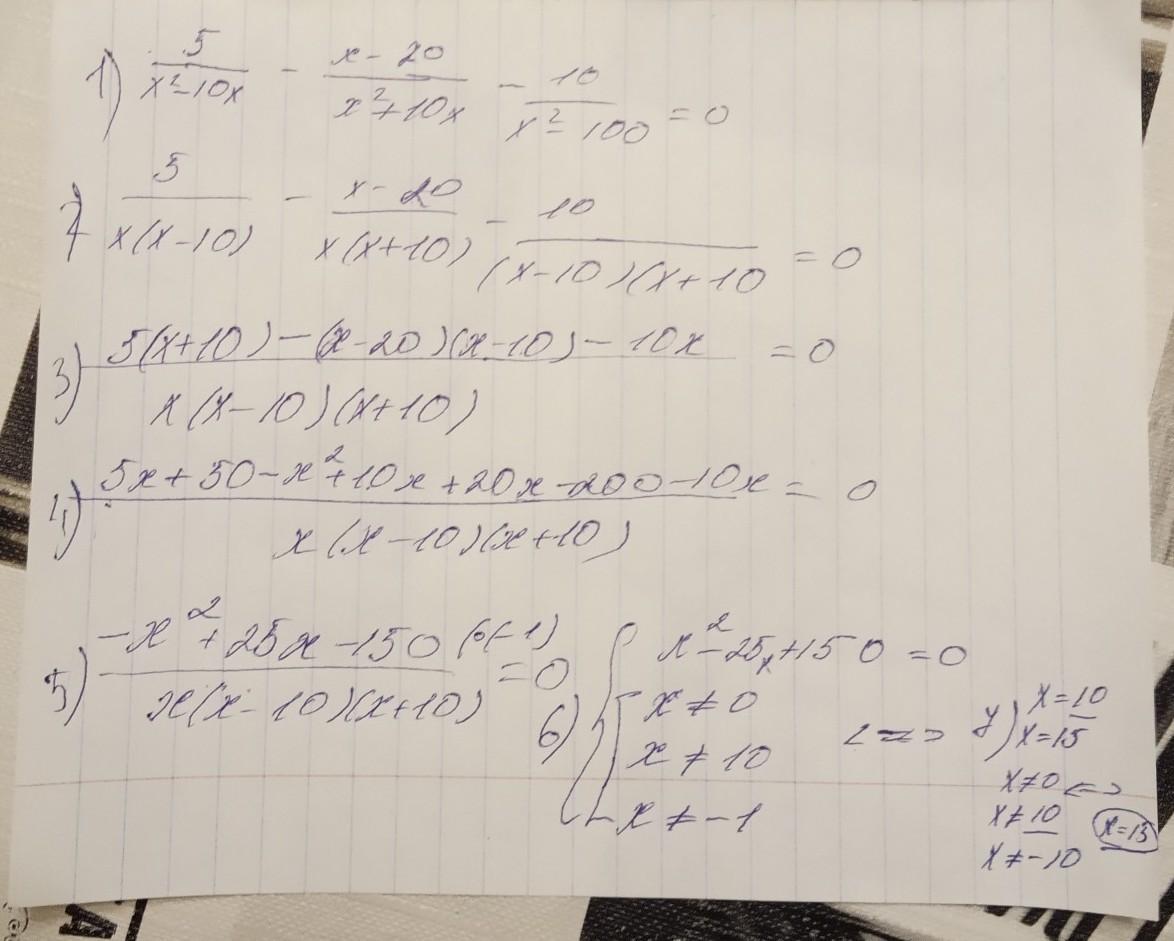 1) 5/(x²-10x) - (x-20)/(x²+10x) - 10/(x²-100) = 0
2) 5/(x(x-10)) - (x-20)/(x(x+10)) - 10/((x-10)(x+10) = 0
3) (5(x+10)-(x-20)(x-10)-10x)/(x(x-10)(x+10)) = 0
4) (5x+50-x²+10x+20x-200-10x)/(x(x-10)(x+10)) = 0
5) (-x²+25x-150)/(x(x-10)(x+10)) (·(-1) = 0
6) { x²-25x+150=0
x≠0
x≠10
x≠-1
<=> 7) x=10
x=15
x≠0 <=>
x≠10
x≠-10
x=15